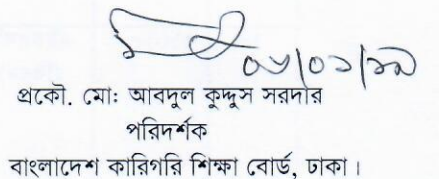 ০৬/০১/১৯
প্রকৌ. মোঃ আবদুল কুদ্দুস সরদার
পরিদর্শক
বাংলাদেশ কারিগরি শিক্ষা বোর্ড, ঢাকা।